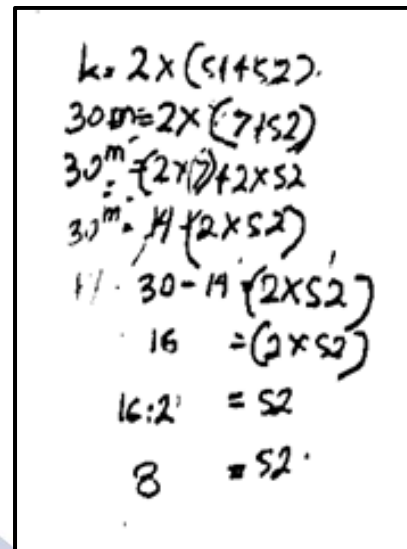 k = 2 x (s1+s2).
30 m = 2 x (7+s2)
30 m = (2x7)+2xs2
30 m = 14+(2xs2)
30-14 = (2xs2)
16 = (2xs2)
16:2 = s2
8 = s2.